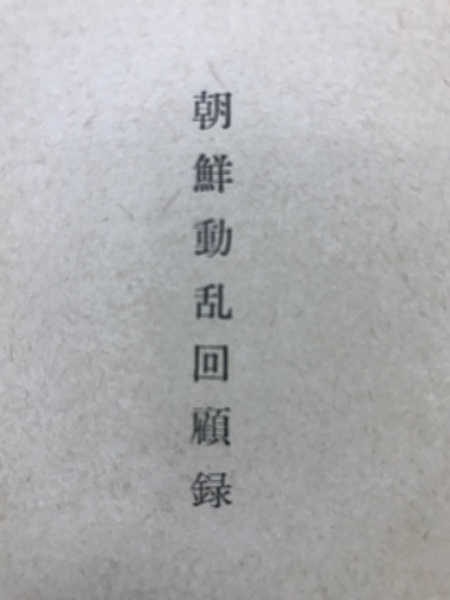 朝鮮動乱回顧録